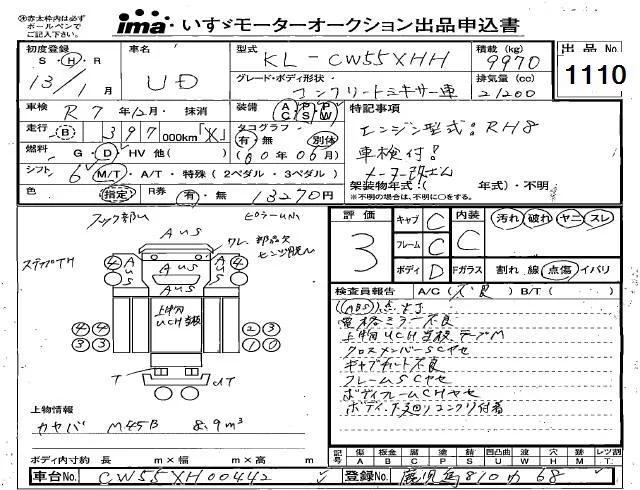 ※赤太枠内は必ず
ボールペンで
ご記入下さい。
ima・いすゞモーターオークション出品申込書
初度登録
S・H・R
13/1月
車名
UD
型式
KL-CW55XHH
積載(kg)
9970
出品No.
1110
グレード・ボディ形状
コンクリートミキサー車
排気量(cc)
21200
車検 R7年12月・抹消
装備 AC PS PW
特記事項
走行 B 397,000km「x」
タコグラフ 有・無 別体
(00年06月)
エンジン型式:RH8
燃料 G・D・HV 他( )
車検付!
シフト 6 M/T・A/T・特殊(2ペダル・3ペダル)
メーター改ざん
色 指定 R券 有・無 13270円
架装物年式( 年式)・不明
※不明の場合は、不明に○をする。
フック部M
ピラーUM
AUS
ワレ、部品欠
ヒンジ脱ル
ステップTH
評価
3
キャブ C
フレーム C
ボディ D
内装
C
汚れ・破れ・ヤニ・スレ
Fガラス 割れ 線 点傷 イバリ
検査員報告 A/C(不良) B/T( )
(ABS)点灯
電格ミラー不良
上中角UCH当板、テープM
クロスメンバーSCヤセ
キャブチルト不良
フレームSCヤセ
ボディフレームCHヤセ
ボディ、下廻りコンクリ付着
上中角
UCH当板
4 4
3 3
2 3
1 0
T T
UT
上物情報
カヤバ MR45B 8.9m³
ボディ内寸約 長 m×幅 m×高 m
記号 傷A 板金B 腐C 補P 錆S 凹凸曲U 波W 穴H 歪M レツ割T
車台No. CW55XH00442
登録No. 鹿児島810か68